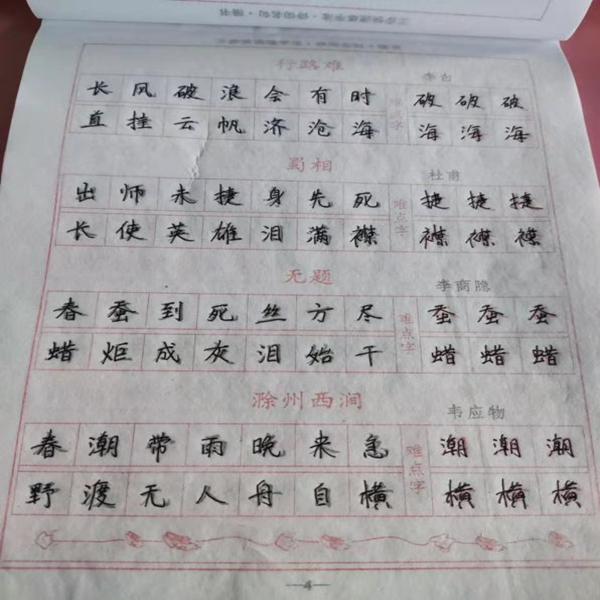 行路难 李白
长风破浪会有时 难点字 破破破
直挂云帆济沧海 海海海
蜀相 杜甫
出师未捷身先死 难点字 捷捷捷
长使英雄泪满襟 襟襟襟
无题 李商隐
春蚕到死丝方尽 难点字 蚕蚕蚕
蜡炬成灰泪始干 蜡蜡蜡
滁州西涧 韦应物
春潮带雨晚来急 难点字 潮潮潮
野渡无人舟自横 横横横
4